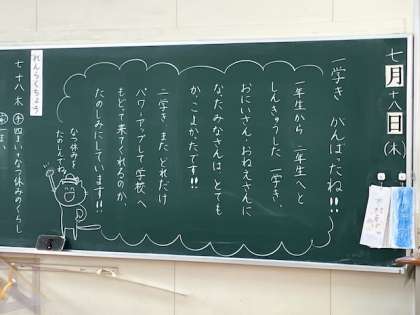 七月十八日(木)
一学き がんばったね!!
一年生から 二年生へと
しんきゅうした 一学き、
おにいさん・おねえさんに
なったみなさんは、とても
かっこよかったです!!
二学き、また どれだけ
パワーアップして 学校へ
もどって来てくれるのか、
たのしみにしています!!
なつ休みを
たのしんでね
れんらくちょう
七 十八 木 手 四まい+なつ休みのくらし